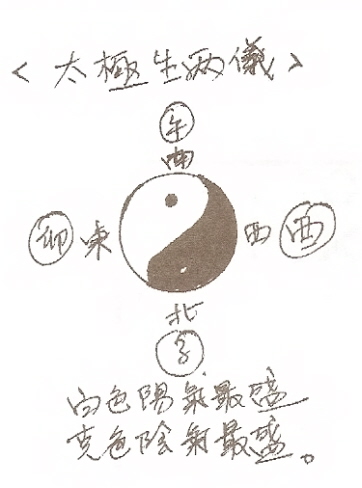 <太極生两儀>
午
南
卯 東 西 酉
北
子
白色陽氣最盛
克色陰氣最盛。